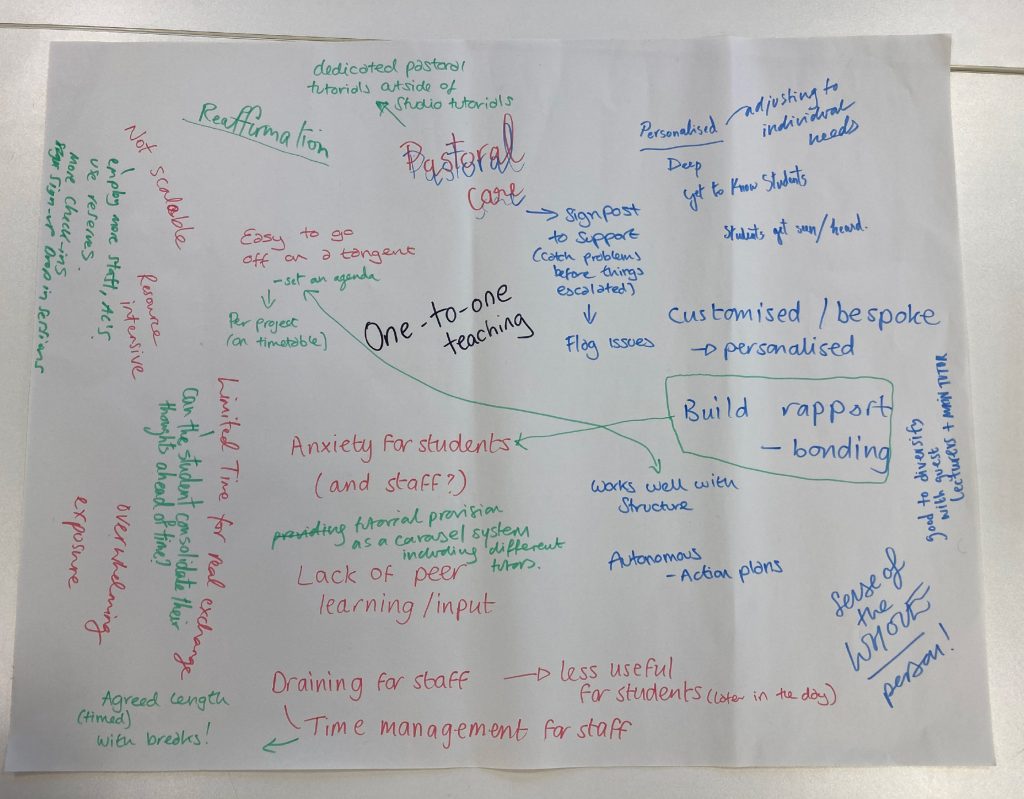 dedicated pastoral
tutorials outside of
studio tutorials
Reaffirmation
Pastoral
care
Personalised
adjusting to
individual
needs
Deep
get to know students
students get seen/heard.
Not scalable
employ more staff, AL's
use reserves.
more check-ins
sign-up Drop in sessions
Resource
intensive
Easy to go
off on a tangent
- set an agenda
Per project
(on timetable)
One-to-one
teaching
Signpost
to support
(catch problems
before things
escalated)
Flag issues
Customised / bespoke
→ personalised
Build rapport
- bonding
good to diversify
with guest
lecturers + MAIN TUTOR
Limited Time for real exchange
Can the student consolidate their
thoughts ahead of time?
Overwhelming
exposure
Anxiety for students
(and staff?)
providing tutorial provision
as a carousel system
including different
tutors.
Lack of peer
learning/input
Works well with
Structure
Autonomous
- Action plans
Sense of
the
WHOLE
person!
Draining for staff
→ less useful
for students (later in the day)
Time management for staff
Agreed length
(timed)
with breaks!